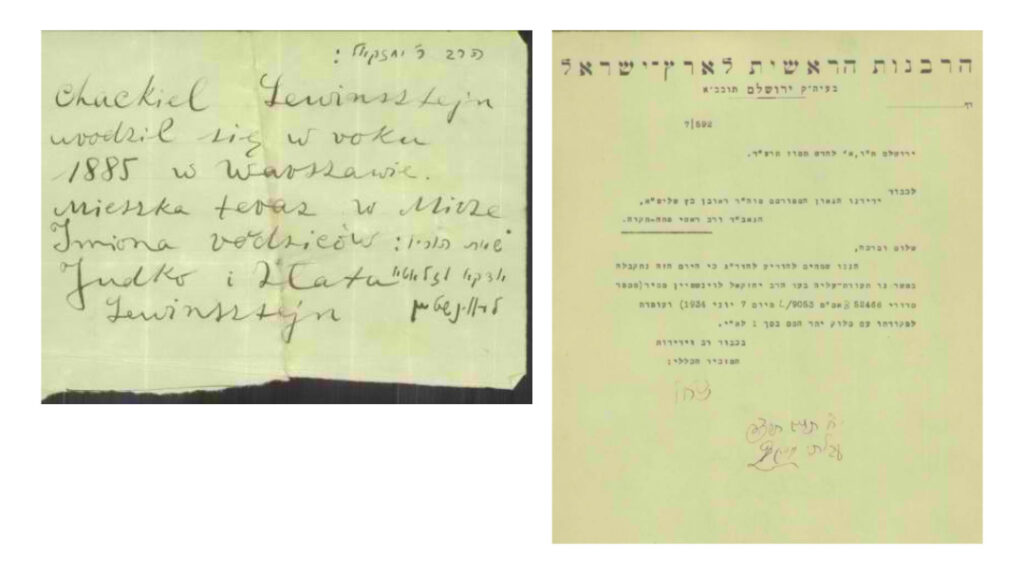 הרב ר' יחזקאל :
Chackiel Lewinsztejn
urodził się w roku
1885 w Warszawie.
Mieszka teraz w Mirze
Imiona rodziców : שמות הוריו
Judko i Złata
Lewinsztejn לעווינשטיין
הרבנות הראשית לארץ־ישראל
בעיה"ק ירושלם תובב"א
דף
7|592
ירושלם ת"ו, א' לחדש תמוז תרצ"ד.
לכבוד
ידידנו הגאון המפורסם מוה"ר ראובן כץ שליט"א,
הגאב"ד ורב ראשי פתח-תקוה.
שלום וברכה,
הננו שמחים להודיע להדר"ג כי היום הזה נתקבלה
במשרדנו תעודת-עליה בעד הרב יחזקאל לוינשטיין ממיר)מספר
סדורי 52466 אס"ם 9053/L היום 7 יוני 1934( ועומדת
לפקודתו עם סלוק יתר הסם בסך 1 לא"י.
בכבוד רב וידידות
המזכיר הכללי: